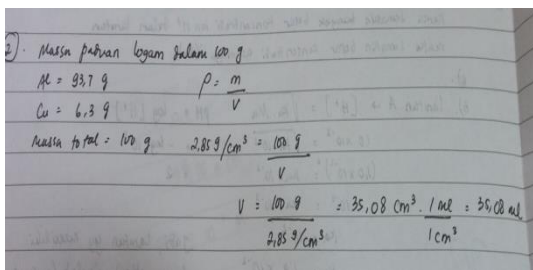 2. Massa paduan logam dalam 100 g
Al = 93,7 g ρ = m / V
Cu = 6,3 g
Massa total = 100 g 2,85 g/cm³ = 100 g / V
V = 100 g / 2,85 g/cm³ = 35,08 cm³ . 1 ml / 1 cm³ = 35,08 ml